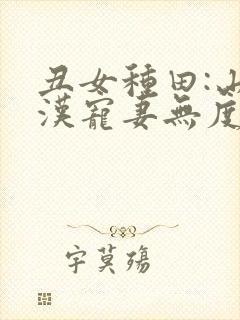 丑女種田:山
漢寵妻無度
字莫殤